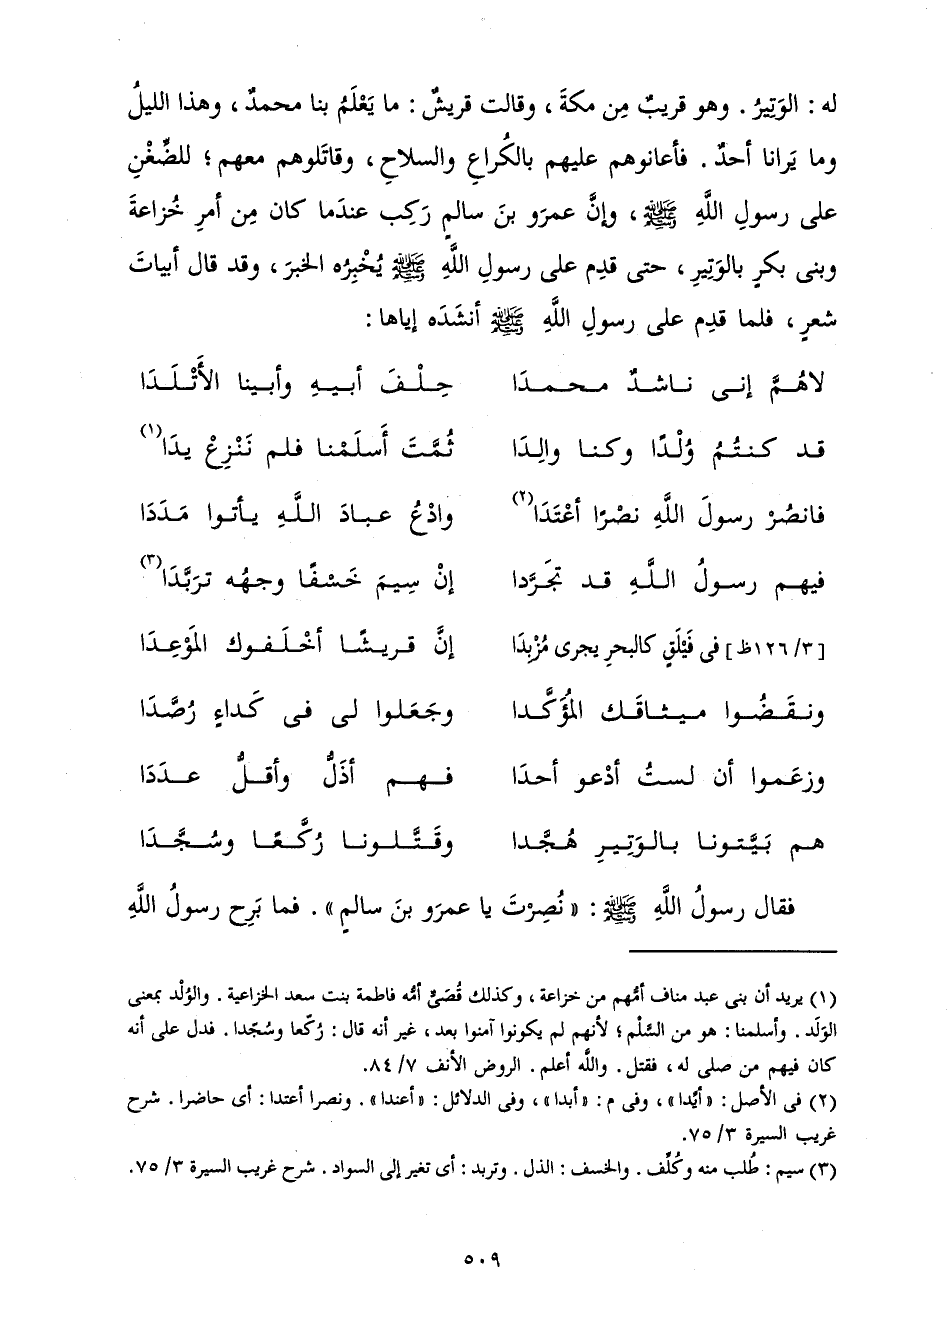 له : الوَتِيرُ . وهو قريبٌ مِن مكةَ ، وقالت قريشٌ : ما يَعْلَمُ بنا محمدٌ ، وهذا الليلُ
وما يَرانا أحدٌ . فأعانوهم عليهم بالكُراعِ والسلاحِ ، وقاتَلوهم معهم ؛ للضِّغْنِ
على رسولِ اللَّهِ ﷺ ، وإنَّ عمرَو بنَ سالمٍ رَكِب عندَما كان مِن أمرِ خُزاعةَ
وبنى بكرٍ بالوَتِيرِ ، حتى قدِم على رسولِ اللَّهِ ﷺ يُخْبِرُه الخبرَ ، وقد قال أبياتَ
شعرٍ ، فلما قدِم على رسولِ اللَّهِ ﷺ أنشَدَه إياها :
لاهُمَّ إنى ناشدٌ محمدَا حِلْفَ أبيهِ وأبينا الأَتْلَدَا
قد كنتُمُ وُلْدًا وكنا والِدَا ثُمَّتَ أَسلَمْنا فلم نَنْزِعْ يدَا(١)
فانصُرْ رسولَ اللَّهِ نصْرًا أعْتَدَا(٢) وادْعُ عبادَ اللَّهِ يأتوا مَدَدَا
فيهم رسولُ اللَّهِ قد تجَرَّدا إنْ سِيمَ خَسْفًا وجهُه تربَّدَا(٣)
[٣/ ١٢٦ظ] فى فَيْلَقٍ كالبحرِ يجرى مُزْبِدَا إنَّ قريشًا أخْلَفوك المَوْعِدَا
ونقَضُوا ميثاقَك المُؤَكَّدا وجَعَلوا لى فى كَداءٍ رُصَّدَا
وزعَموا أن لستُ أدْعو أحدَا فهم أذَلُّ وأقلُّ عدَدَا
هم بَيَّتونا بالوَتِيرِ هُجَّدا وقَتَّلونا رُكَّعًا وسُجَّدَا
فقال رسولُ اللَّهِ ﷺ : « نُصِرْتَ يا عمرَو بنَ سالمٍ » . فما بَرِح رسولُ اللَّهِ
(١) يريد أن بنى عبد مناف أمُّهم من خزاعة ، وكذلك قُصَىٌّ أمُّه فاطمة بنت سعد الخزاعية . والوُلْد بمعنى
الوَلَد . وأسلمنا : هو من السِّلْم ؛ لأنهم لم يكونوا آمنوا بعد ، غير أنه قال : رُكَّعا وسُجَّدا . فدل على أنه
كان فيهم من صلى له ، فقتل . واللَّه أعلم . الروض الأنف ٧/ ٨٤.
(٢) فى الأصل : «أيِّدا» ، وفى م : «أبدا» ، وفى الدلائل : «أعندا» . ونصرا أعتدا : أى حاضرا . شرح
غريب السيرة ٣/ ٧٥.
(٣) سيم : طُلب منه وكُلِّف . والخسف : الذل . وتربد : أى تغير إلى السواد . شرح غريب السيرة ٣/ ٧٥.
٥٠٩